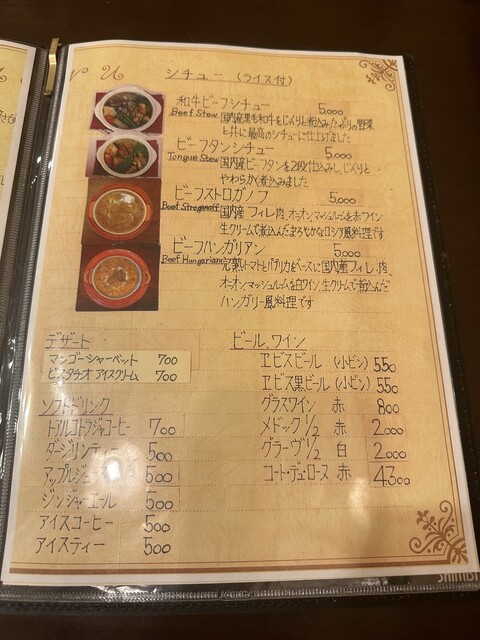 シチュー (ライス付)
和牛ビーフシチュー 5,000
Beef Stew 国内産黒毛和牛をじっくりと煮込みたっぷりの野菜
と共に最高のシチューに仕上げました
ビーフタンシチュー 5,000
Tongue Stew 国内産ビーフタンを2段仕込みし、じっくりと
やわらかく煮込みました
ビーフストロガノフ 5,000
Beef Stroganoff 国内産フィレ肉、オニオン、マッシュルームを赤ワイン
生クリームで煮込んだまろやかなロシア風料理です
ビーフハンガリアン 5,000
Beef Hungarian 完熟トマトとパプリカをベースに国内産フィレ肉、
オニオン、マッシュルームを白ワイン、生クリームで煮込んだ
ハンガリー風料理です
デザート
マンゴーシャーベット 700
ピスタチオ アイスクリーム 700
ソフトドリンク
トアルコトラジャコーヒー 700
ダージリンティー 500
アップルジュース 500
ジンジャーエール 500
アイスコーヒー 500
アイスティー 500
ビール、ワイン
ヱビスビール (小ビン) 550
ヱビス黒ビール (小ビン) 550
グラスワイン 赤 800
メドック 1/2 赤 2,000
グラーヴ 1/2 白 2,000
コート・デュ・ローヌ 赤 4,300